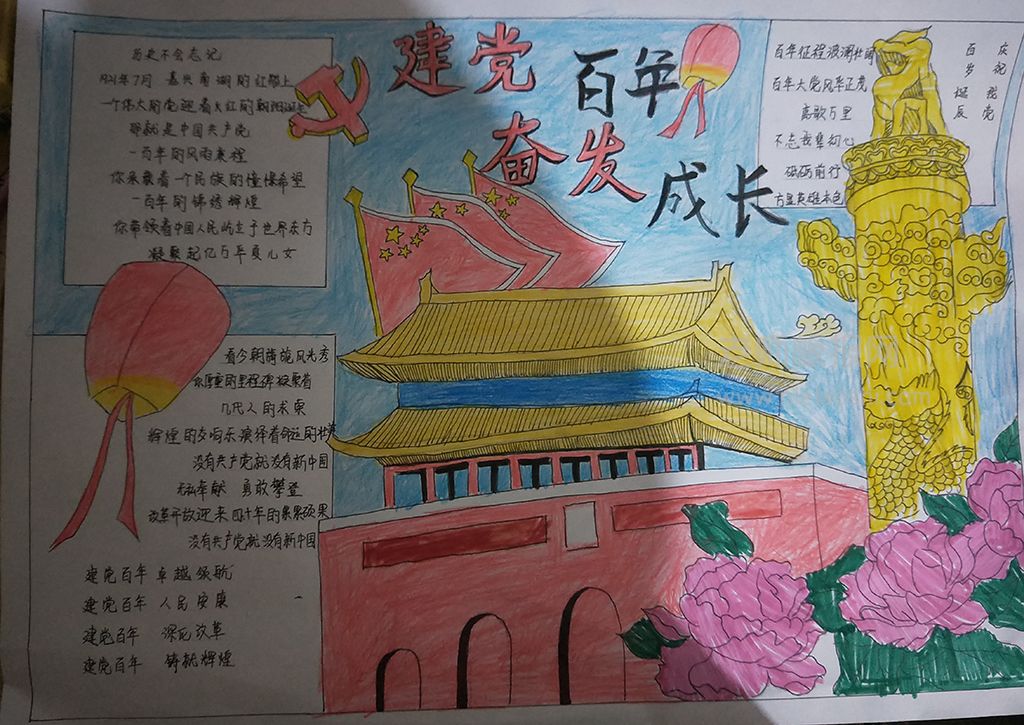 建党
百年
奋发
成长
历史不会忘记
1921年7月 嘉兴南湖的红船上
一个伟大的党迎着火红的朝阳诞生
那就是中国共产党
一百年的风雨兼程
你承载着一个民族的憧憬希望
一百年的锦绣辉煌
你带领着中国人民屹立于世界东方
凝聚起亿万华夏儿女
看今朝旖旎风光秀
你厚重的里程碑凝聚着
几代人的求索
辉煌的交响乐演绎着命运的壮美
没有共产党就没有新中国
无私奉献 勇敢攀登
改革开放迎来四十年的累累硕果
没有共产党就没有新中国
建党百年 卓越领航
建党百年 人民安康
建党百年 深化改革
建党百年 铸就辉煌
百年征程波澜壮阔
百年大党风华正茂
高歌万里
不忘我辈初心
砥砺前行
方显英雄本色
庆祝我党
百岁诞辰